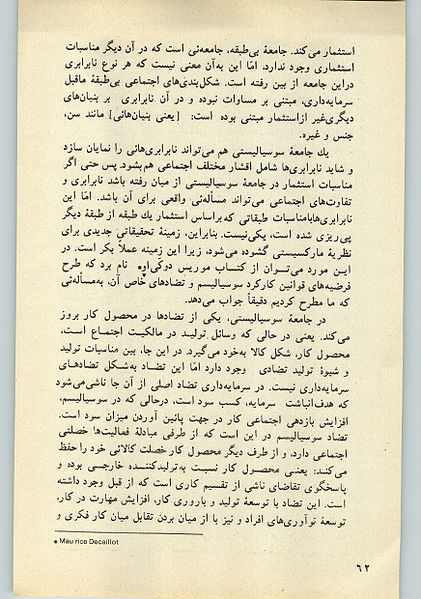 استثمار می‌کند. جامعهٔ بی‌طبقه، جامعه‌ئی است که در آن دیگر مناسبات
استثماری وجود ندارد، امّا این به‌آن معنی نیست که هر نوع نابرابری
دراین جامعه از بین رفته است. شکل‌بندی‌های اجتماعی بی‌طبقهٔ ماقبل
سرمایه‌داری، مبتنی بر مساوات نبوده و در آن نابرابری بر بنیان‌های
دیگری‌غیر ازاستثمار مبتنی بوده است: [یعنی بنیان‌هائی] مانند سن،
جنس و غیره.
یك جامعهٔ سوسیالیستی هم می‌تواند نابرابری‌هائی را نمایان سازد
و شاید نابرابری‌ها شامل اقشار مختلف اجتماعی هم‌بشود. پس حتی اگر
مناسبات استثمار در جامعهٔ سوسیالیستی از میان رفته باشد نابرابری و
تفاوت‌های اجتماعی می‌تواند مسأله‌ئی واقعی برای آن باشد. امّا این
نابرابری‌هابامناسبات طبقاتی که‌براساس استثمار یك طبقه از طبقهٔ دیگر
پی‌ریزی شده است، یکی‌نیست. بنابراین، زمینهٔ تحقیقاتی جدیدی برای
نظریهٔ مارکسیستی گشوده می‌شود، زیرا این زمینه عملاً بکر است. در
این مورد می‌توان از کتاب موریس دوکی‌اوه نام برد که طرح
فرضیه‌های قوانین کارکرد سوسیالیسم و تضادهای خاص آن، به‌مسأله‌ئی
که ما مطرح کردیم دقیقاً جواب می‌دهد.
در جامعهٔ سوسیالیستی، یکی از تضادها در محصول کار بروز
می‌کند. یعنی در حالی که وسائل تولید در مالکیت اجتماع است،
محصول کار، شکل کالا به‌خود می‌گیرد. در این جا، بین مناسبات تولید
و شیوهٔ تولید تضادی وجود دارد امّا این تضاد به‌شکل تضادهای
سرمایه‌داری نیست. در سرمایه‌داری تضاد اصلی از آن جا ناشی‌می‌شود
که هدف‌انباشت سرمایه، کسب سود است، درحالی که در سوسیالیسم،
افزایش بازدهی اجتماعی کار در جهت پائین آوردن میزان سود است.
تضاد سوسیالیسم در این است که از طرفی مبادلهٔ فعالیت‌ها خصلتی
اجتماعی دارد، و از طرف دیگر محصول کار خصلت کالائی خود را حفظ
می‌کند: یعنی محصول کار نسبت به‌تولیدکننده خارجی بوده و
پاسخگوی تقاضای ناشی از تقسیم کاری است که از قبل وجود داشته
است. این تضاد با توسعهٔ تولید و باروری کار، افزایش مهارت در کار،
توسعهٔ نوآوری‌های افراد و نیز با از میان بردن تقابل میان کار فکری و
* Maurice Decaillot
۶۲